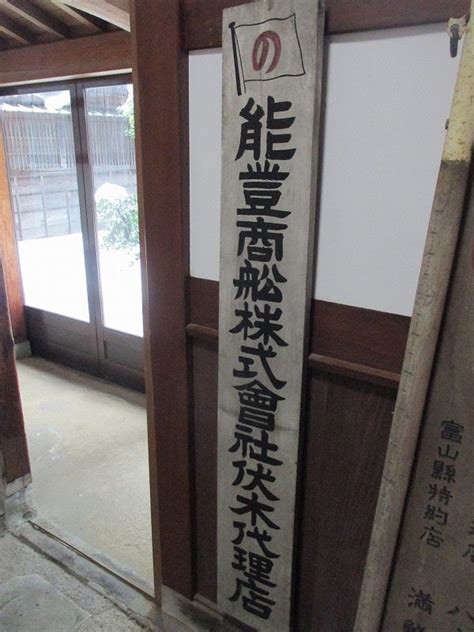 の
能登商船株式會社伏木代理店
富山縣特約店
満